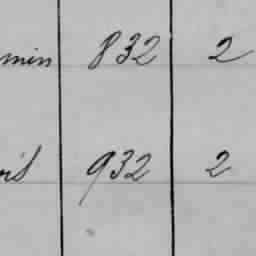 min 832 2
932 2